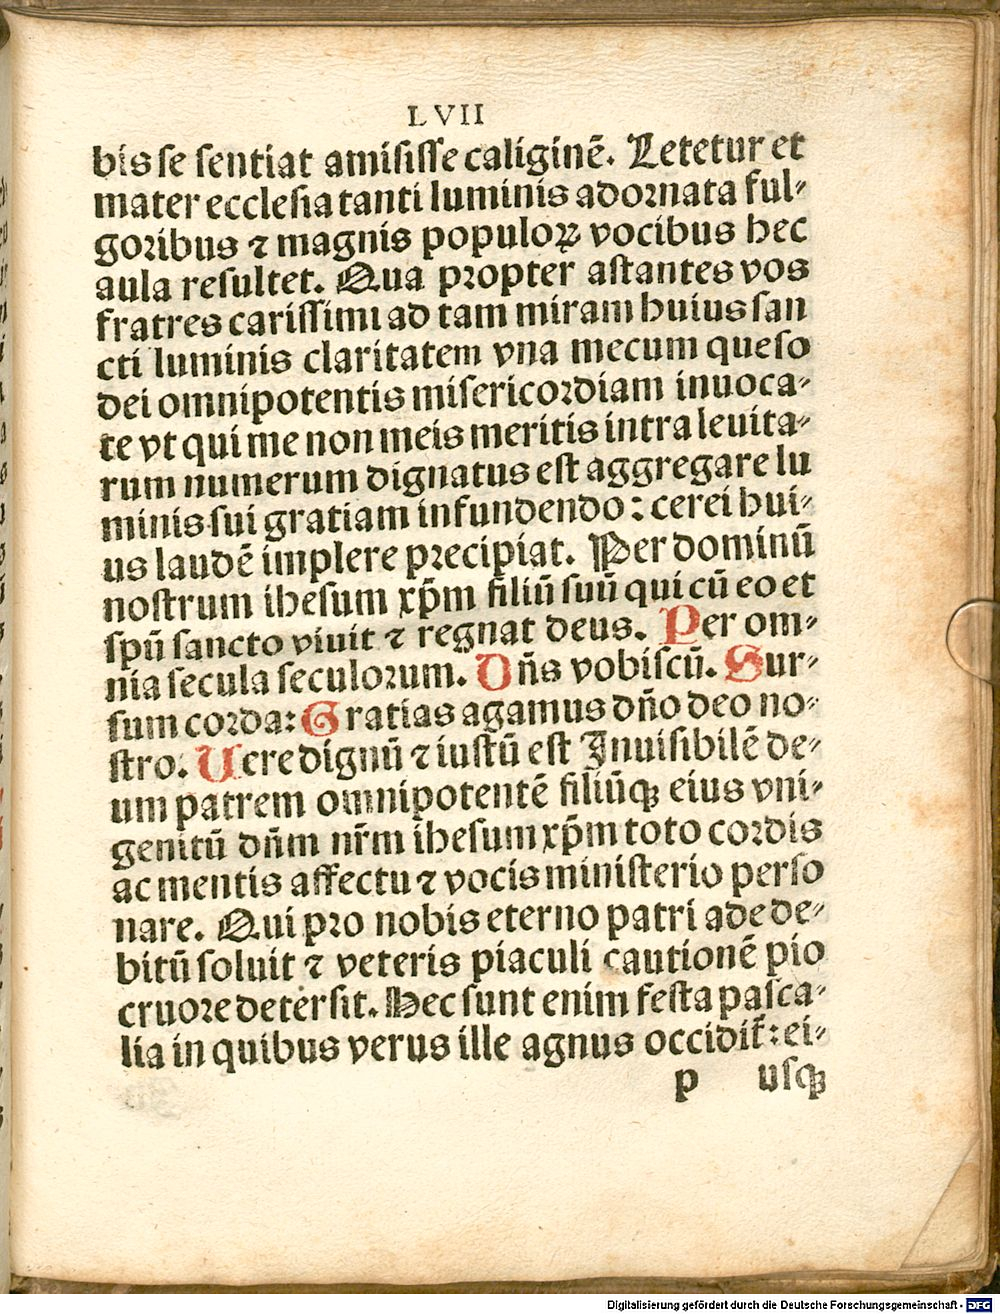 LVII
bis se sentiat amisisse caliginē. Letetur et
mater ecclesia tanti luminis adornata ful-
goribus ⁊ magnis populoꝝ vocibus hec
aula resultet. Qua propter astantes vos
fratres carissimi ad tam miram huius san
cti luminis claritatem vna mecum queso
dei omnipotentis misericordiam inuoca-
te vt qui me non meis meritis intra leuita-
rum numerum dignatus est aggregare lu
minis sui gratiam infundendo: cerei hui-
us laudē implere precipiat. Per dominū
nostrum ihesum xp̄m filiū suū qui cū eo et
spū sancto viuit ⁊ regnat deus. Per om-
nia secula seculorum. Dn̄s vobiscū. Sur-
sum corda: Gratias agamus dn̄o deo no-
stro. Vere dignū ⁊ iustū est Inuisibilē de-
um patrem omnipotentē filiūqꝫ eius vni-
genitū dn̄m nr̄m ihesum xp̄m toto cordis
ac mentis affectu ⁊ vocis ministerio perso
nare. Qui pro nobis eterno patri ade de-
bitū soluit ⁊ veteris piaculi cautionē pio
cruore detersit. Hec sunt enim festa pasca-
lia in quibus verus ille agnus occidit᷑: ei-
p usqꝫ
Digitalisierung gefördert durch die Deutsche Forschungsgemeinschaft - DFG